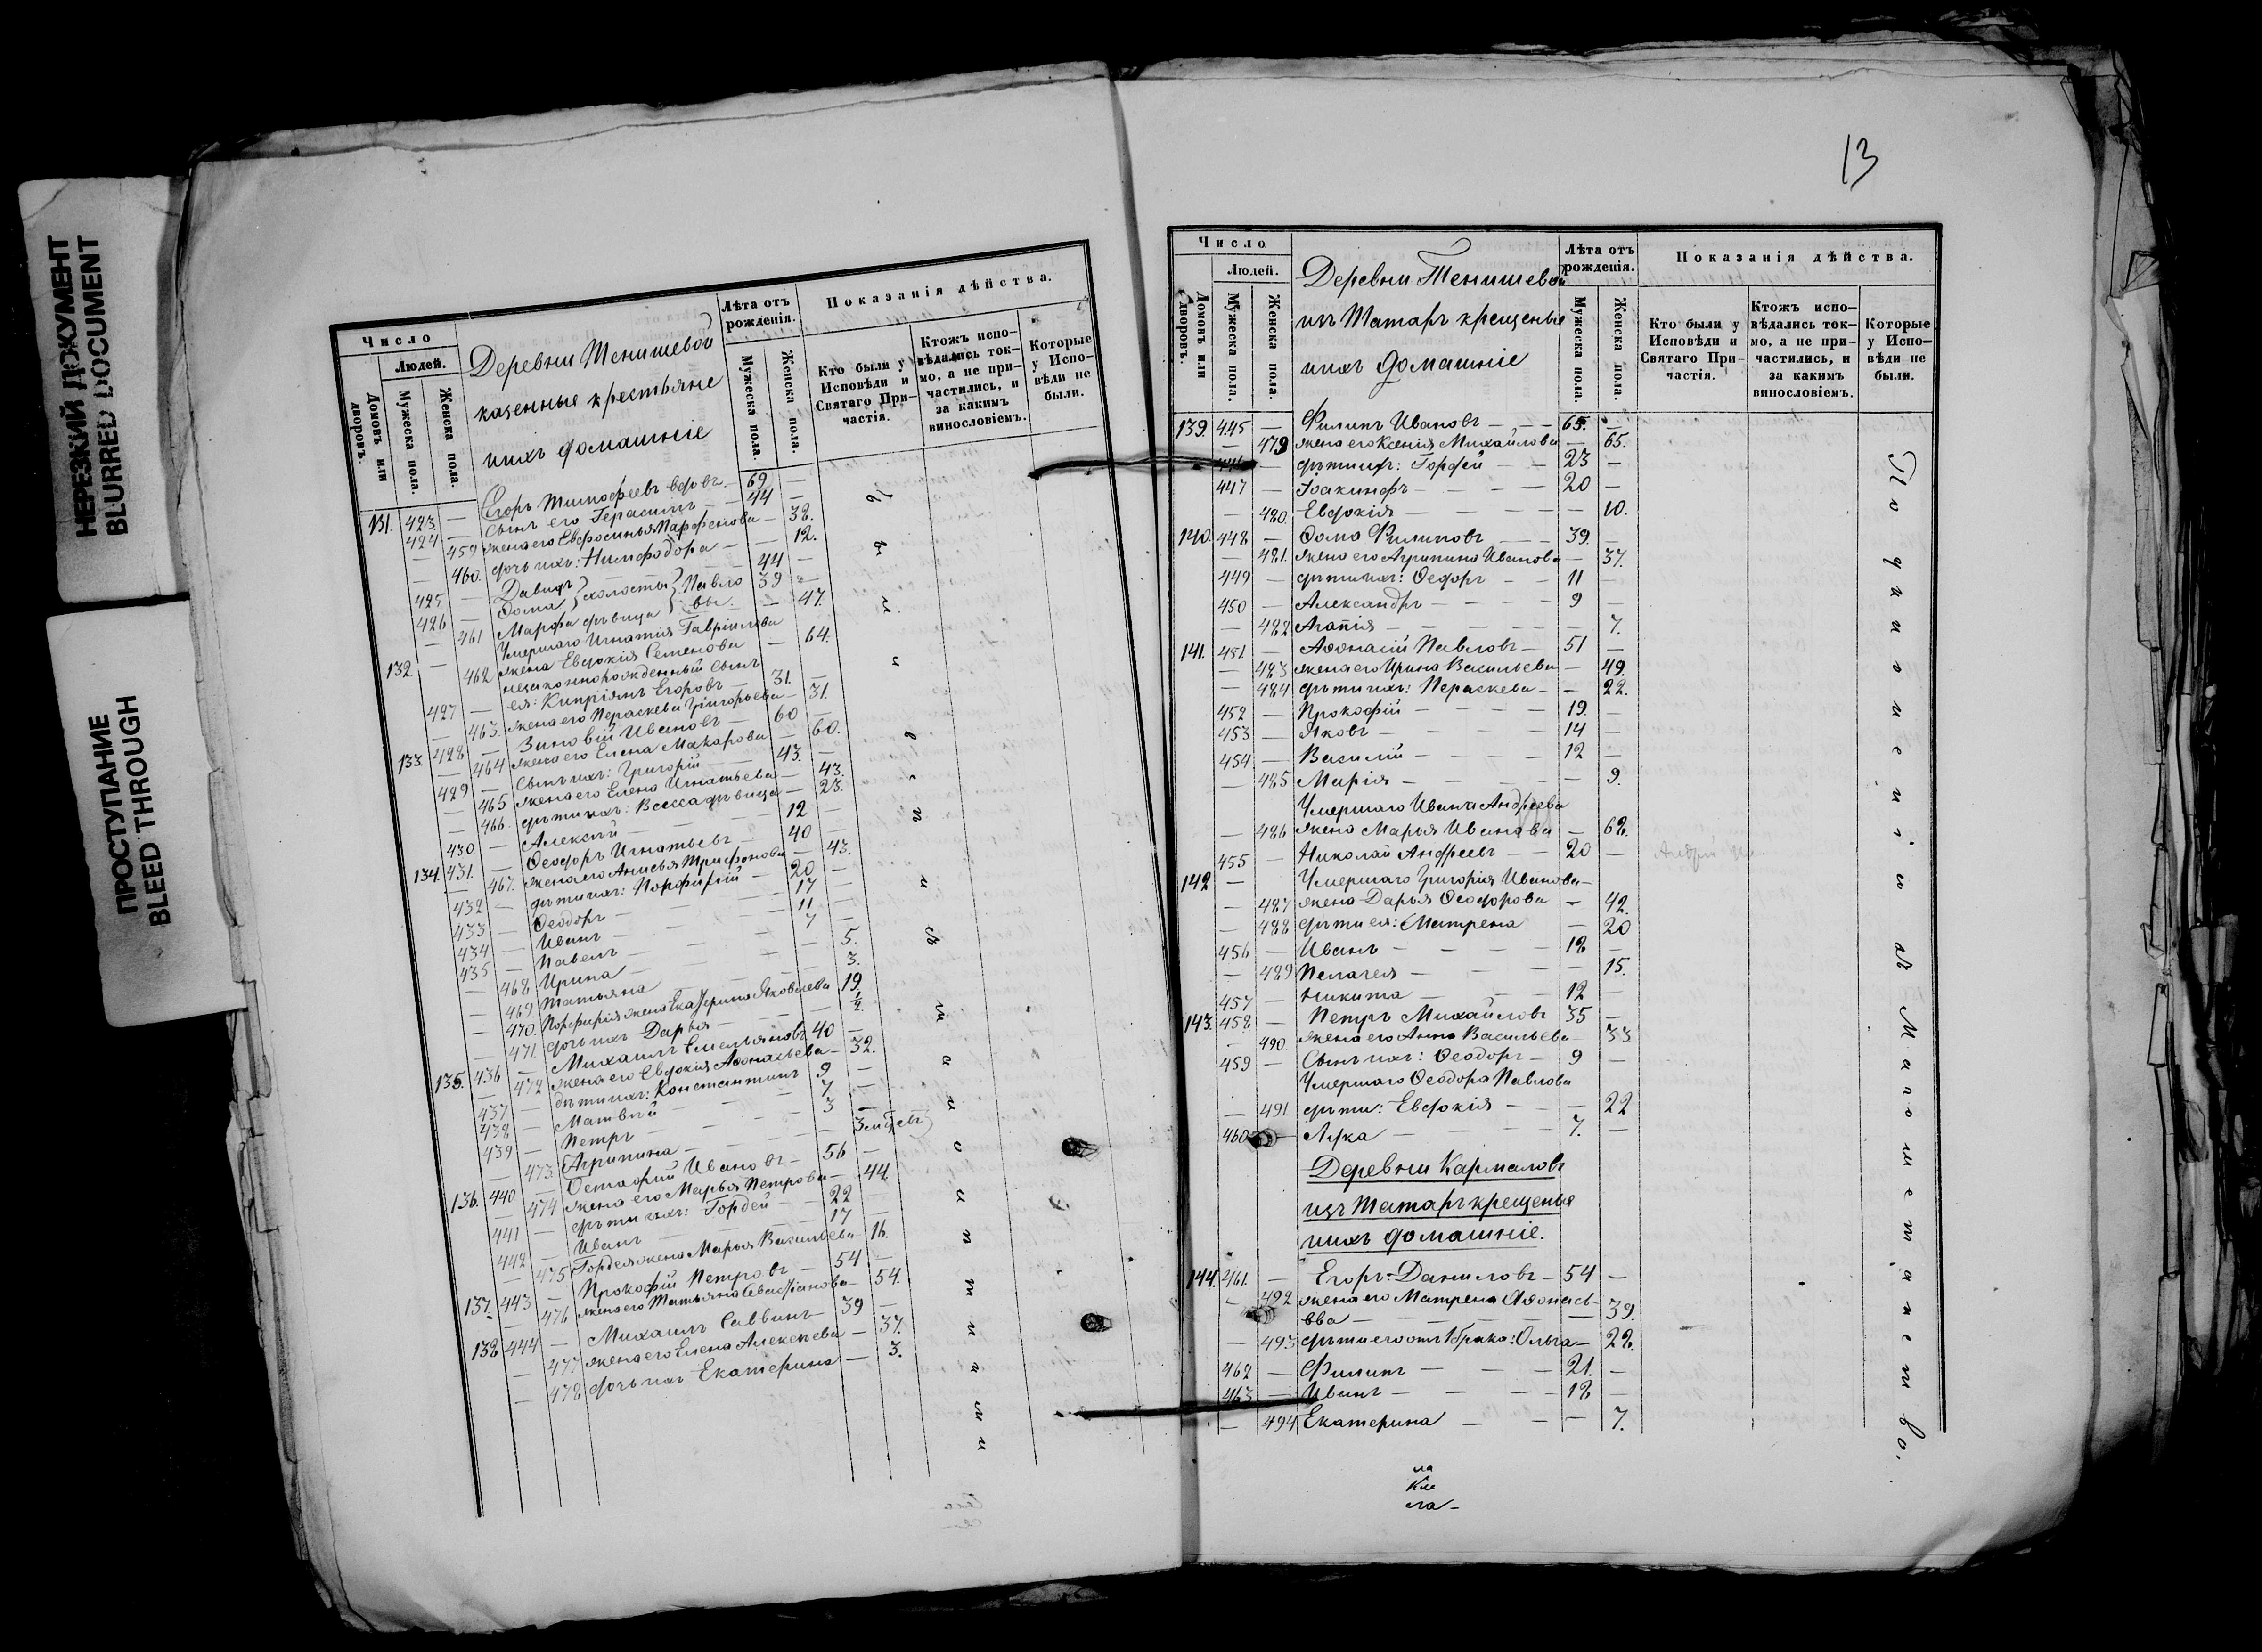 НЕРЕЗКИЙ ДОКУМЕНТ
BLURRED DOCUMENT
ПРОСТУПАНИЕ
BLEED THROUGH
Число
Людей.
Домовъ или дворовъ.
Мужеска пола.
Женска пола.
Деревни Тенишевой
казенные крестьяне
ихъ домашніе
Лѣта отъ рожденія.
Мужеска пола.
Женска пола.
Показанія дѣйства.
Кто были у Исповѣди и Святаго Причастія.
Ктожъ исповѣдались токмо, а не причастились, и за какимъ винословіемъ.
Которые у Исповѣди не были.
131. 423 — Егоръ Тимофеевъ вдовъ — 69 —
424 — сынъ его Герасимъ — 44 —
— 459 жена его Евфросинья Парфенова — 38.
— 460. дочь ихъ: Нимфодора — — 12.
425 — Давидъ } холосты } Павло 44 —
426 — Ѳома 39 —
— 461 Марфа дѣвица } вы. — 47.
132. Умершаго Игнатія Гавріилова
— 462 жена Евдокія Семенова — 64.
незаконнорожденный сынъ
427 — ея: Кипріянъ Егоровъ — 31. —
— 463. жена его Пераскева Григорьева — 31.
133. 428 — Зиновій Ивановъ — 60 —
— 464 жена его Елена Макарова — 60.
429 — сынъ ихъ: Григорій — 43. —
— 465 жена его Елена Игнатьева — 43.
— 466. дѣти ихъ: Васса дѣвица — 23.
430 — Алексѣй — 12 —
134. 431. — Ѳеодоръ Игнатьевъ — 40 —
— 467. жена его Анисья Трифонова — 43.
432 — дѣти ихъ: Порфирій — 20 —
433 — Ѳеодоръ — 17 —
434 — Иванъ — 11 —
435 — Павелъ — 7 —
— 468 Ирина — — 5.
— 469 Татьяна — — 3.
— 470. Порфирія жена Екатерина Яковлева 19
— 471. дочь ихъ Дарья — — ½
135. 436 — Михаилъ Емельяновъ 40 —
— 472 жена его Евдокія Аѳонасьева — 32.
437 — дѣти ихъ: Константинъ 9 —
438 — Матвѣй — 7 —
439 — Петръ — 3 —
— 473. Агрипина —
136. 440 — Остафій Ивановъ — 56 —
— 474 жена его Марья Петрова — 44.
441 — дѣти ихъ: Гордей — 22 —
442 — Иванъ — 17 —
— 475 Гордея жена Марья Васильева 16.
137. 443 — Прокофій Петровъ — 54 —
— 476 жена его Татьяна Севастіанова — 54.
138 444 — Михаилъ Саввинъ — 39 —
— 477 жена его Елена Алексѣева — 37.
— 478 дочь ихъ Екатерина — 3.
13
Число.
Людей.
Домовъ или дворовъ.
Мужеска пола.
Женска пола.
Деревни Тенишевой
изъ Татаръ крещеные
ихъ домашніе
Лѣта отъ рожденія.
Мужеска пола.
Женска пола.
Показанія дѣйства.
Кто были у Исповѣди и Святаго Причастія.
Ктожъ исповѣдались токмо, а не причастились, и за какимъ винословіемъ.
Которые у Исповѣди не были.
139. 445 — Филипъ Ивановъ — — 65. —
— 479 жена его Ксенія Михайлова — 65.
446 — дѣти ихъ: Гордей — 23 —
447 — Іоакинфъ — — 20 —
— 480. Евдокія — — 10.
140. 448 — Ѳома Филиповъ — — 39. —
— 481. жена его Агрипина Иванова — 37.
449 — дѣти ихъ: Ѳедоръ — 11 —
450 — Александръ — — 9 —
— 482 Агапія — — 7.
141. 451 — Аѳонасій Павловъ — 51 —
— 483 жена его Ирина Васильева — 49.
— 484 дѣти ихъ: Пераскева — — 22.
452 — Прокофій — — 19. —
453 — Яковъ — — 14 —
454 — Василій — — 12 —
— 485 Марія — — 9.
Умершаго Ивана Андреева
— 486 жена Марья Иванова — 68.
455 — Николай Андреевъ — 20 —
142 — Умершаго Григорія Иванова —
— 487 жена Дарья Ѳеодорова — 42.
— 488 дѣти ея: Матрена — 20
456 — Иванъ — — 18 —
— 489 Пелагея — — 15.
457 — Никита — — 12 —
143. 458 — Петръ Михайловъ 35 —
— 490. жена его Анна Васильева — 33
459 — сынъ ихъ: Ѳеодоръ — 9 —
Умершаго Ѳеодора Павлова
— 491. дѣти: Евдокія — — 22
460 — Лука — — 7. —
Деревни Кармаловъ
изъ Татаръ крещеные
ихъ домашніе.
144. 461. — Егоръ Даниловъ — 54 —
— 492 жена его Матрена Аѳонась-
ева — — 39.
— 493 дѣти его отъ 1 брака: Ольга — 22.
462 — Филипъ — — 21. —
463 — Иванъ — — 18 —
— 494 Екатерина — — 7.